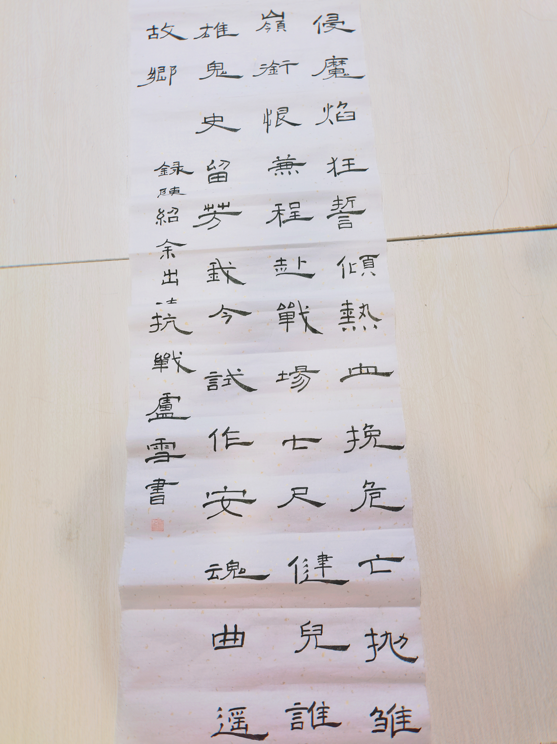 侵魔焰狂誓傾熱血挽危亡拋雛
嶺銜恨兼程赴戰場七尺健兒誰
雄鬼史留芳我今試作安魂曲遥
故鄉
録陳紹余出抗戰盧雪書